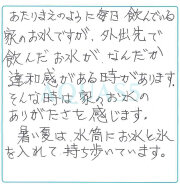 あたりまえのように毎日飲んでいる
家のお水ですが、外出先で
飲んだお水が なんだか
違和感がある時があります。
そんな時は 家のお水の
ありがたさを 感じます。
暑い夏は 水筒にお水と氷
を入れて 持ち歩いています。